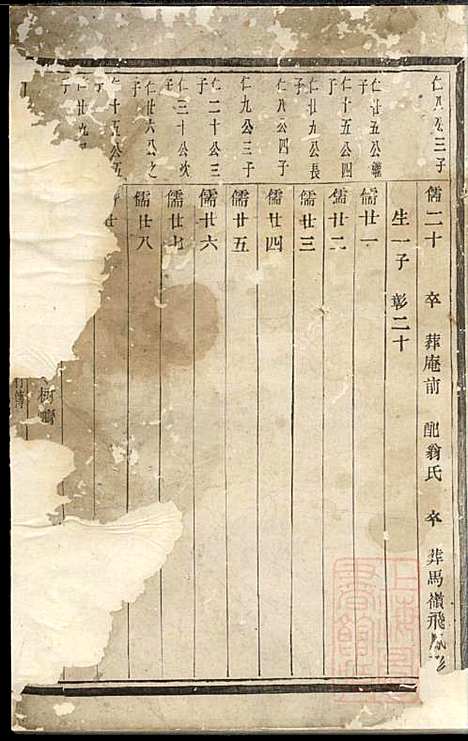 仁八公三子
儒二十 卒 葬庵前 配翁氏 卒 葬馬嶺飛
生一子 彰二十
仁廿五公繼子
儒廿一
仁十五公四子
儒廿二
仁廿九公長子
儒廿三
仁八公四子
儒廿四
仁九公三子
儒廿五
仁二十公三子
儒廿六
仁三十公次子
儒廿七
仁廿六公之子
儒廿八
仁十五公五
仁廿九